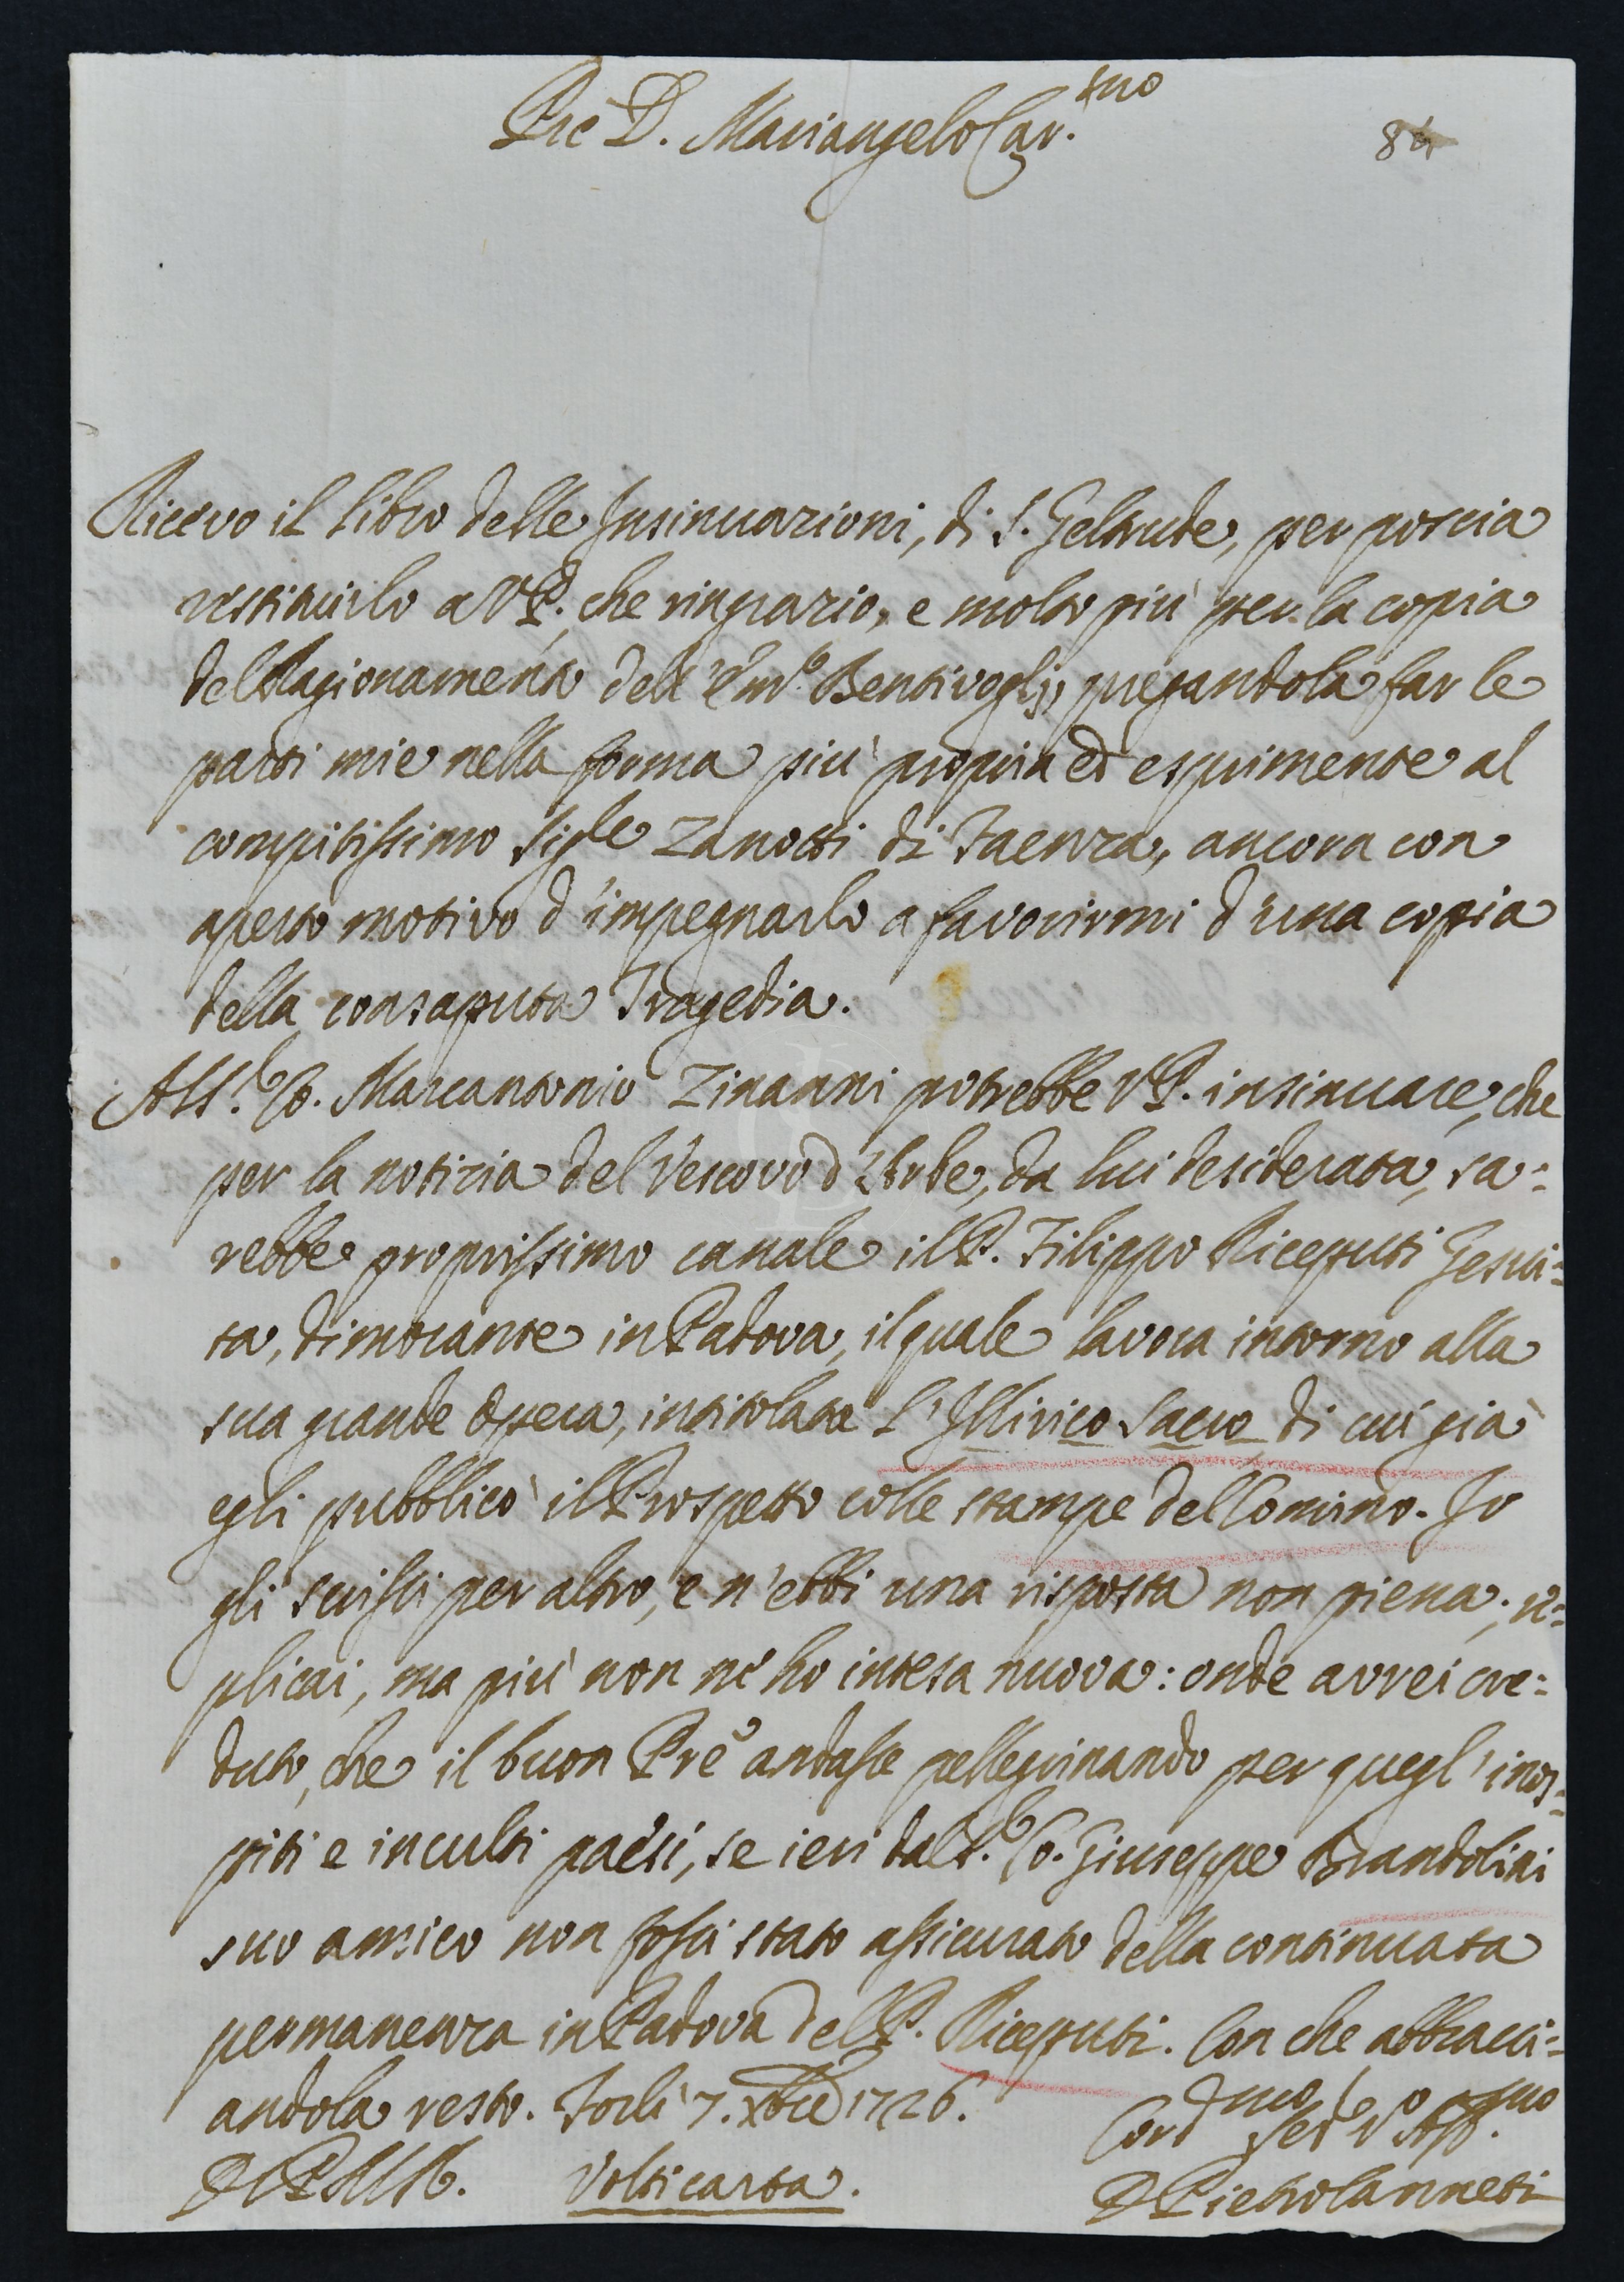 Pre D. Mariangelo Car.mo
84
Ricevo il libro delle Insinuazioni, di S. Geltrude, per poscia
restituirlo a VP. che ringrazio, e molto più per la copia
del Ragionamento dell'Emo. Bentivoglio, pregandola far le
parti mie nella forma più propria ed esprimente al
compitissimo Sigle Zanotti di Faenza, ancora con
aperto motivo d'impegnarlo a favorirmi d'una copia
della consaputa Tragedia.
Al S. Co. Marcantonio Zinanni potrebbe VP. insinuare, che
per la notizia del Vescovo d'Arbe, da lui desiderata, sa=
rebbe proprissimo canale il P. Filippo Riceputi Gesui=
ta, dimorante in Padova, il quale lavora intorno alla
sua grande Opera, intitolata L'Illirico Sacro di cui già
egli pubblicò il Prospetto colle stampe del Comino. Io
gli scrissi per altro, e n'ebbi una risposta non piena; re=
plicai, ma più non ne ho intesa nuova: onde avrei cre=
duto, che il buon Pre andasse pellegrinando per quegl'inos=
piti e inculti paesi, se ieri dal S. Co. Giuseppe Brandolini
suo amico non fossi stato assicurato della continuata
permanenza in Padova del P. Riceputi. Con che abbracci=
andola resto. Forlì 7. Xbre 1726.
Cordmo Sere Affmo
Volti carta.
D Pietro Canneti